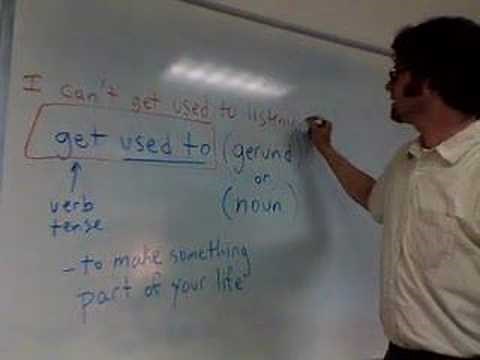 I can't get used to listenin
get used to (gerund)
or
(noun)
verb
tense
- to make something
part of your life